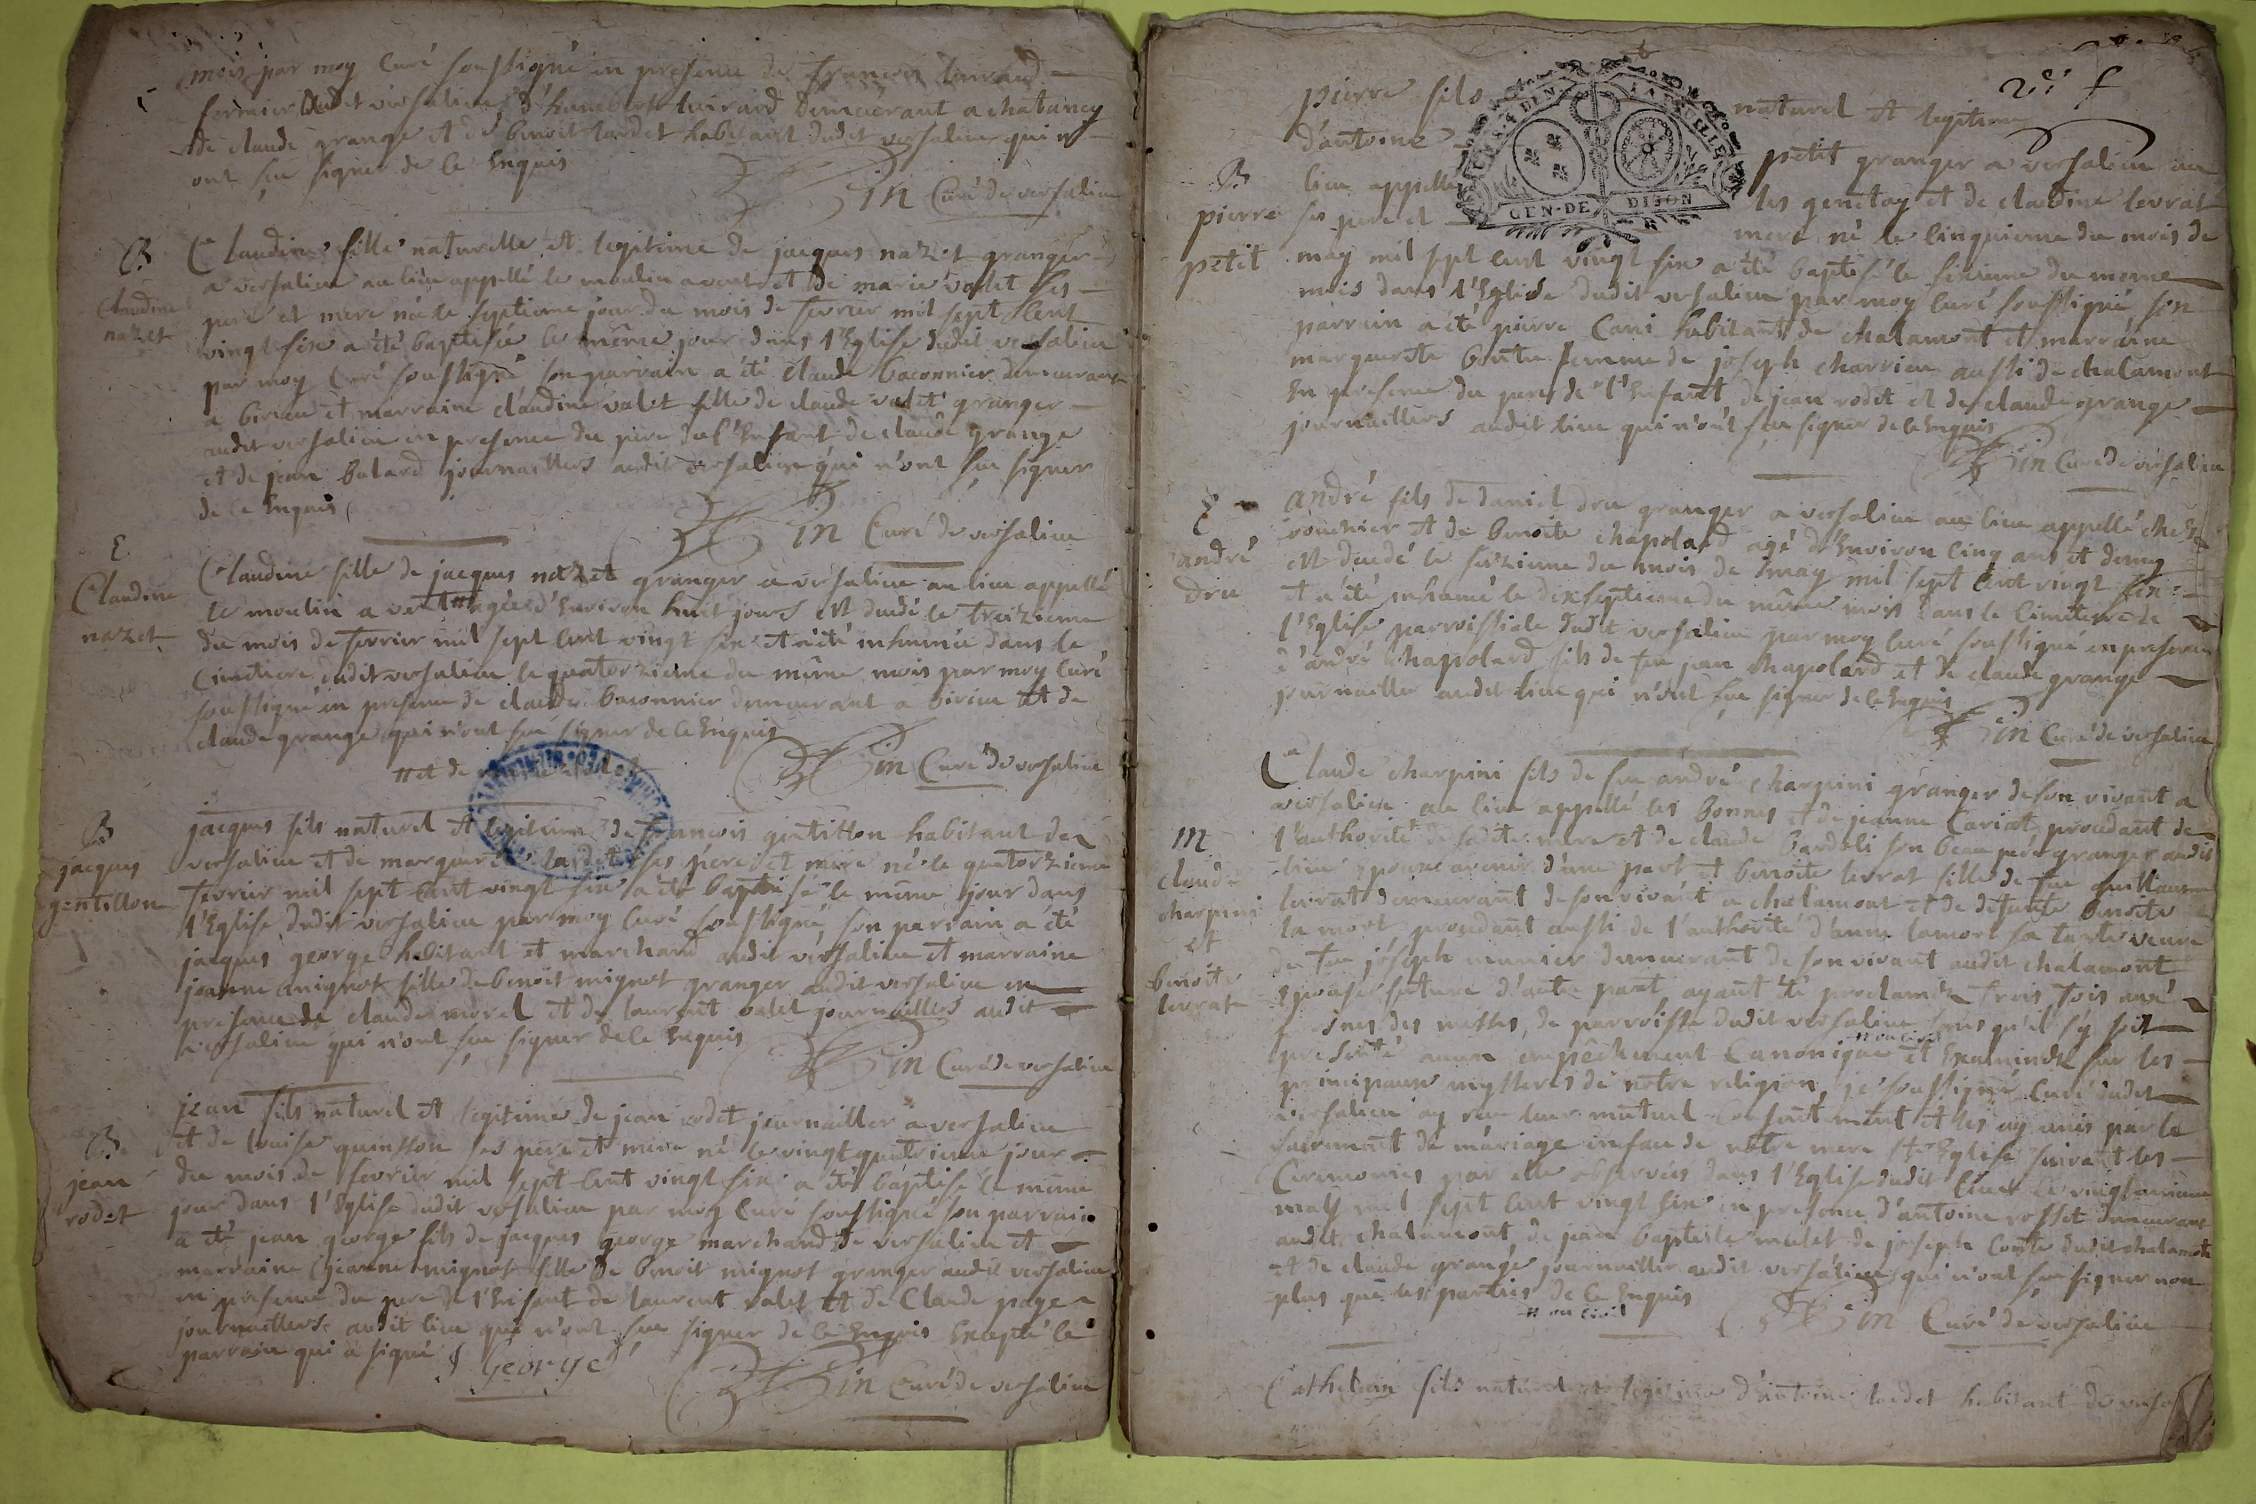 mois par moy Curé soussigné en presence de françois
fermier dudit versalieu d'humbert luirard demeurant a chatanay
de claude grange et de benoit tardet habitant dudit versalieu qui n'
ont sçu signer de ce Enquis
Curé de versalieu
B
Claudine
nazet
Claudine fille naturelle et legitime de jacques nazet granger
a versalieu au lieu appellé le moulin a vent et de marie valet ses
pere et mere née le septieme jour du mois de fevrier mil sept Cent
vingt six a été baptisée le même jour dans l'Eglise dudit versalieu
par moy Curé soussigné son parrain a été claude baconnier demeurant
a birieu et marraine claudine valet fille de claude valet granger
audit versalieu en presence du pere de l'Enfant de claude grange
et de jean balard journaillers audit versalieu qui n'ont sçu signer
de ce Enquis
Curé de versalieu
E
Claudine
nazet
Claudine fille de jacques nazet granger a versalieu au lieu appellé
le moulin a vent # agée d'Environ huit jours est decedé le treizieme
du mois de fevrier mil sept Cent vingt six et a été inhumée dans le
Cimetiere dudit versalieu le quatorzieme du même mois par moy Curé
soussigné en presence de claude baconnier demeurant a birieu et de
claude grange qui n'ont sçu signer de ce Enquis
# et de marie valet
Curé de versalieu
B
jacques
gentillon
jacques fils naturel et legitime de françois gentillon habitant de
versalieu et de marguerite tardet ses pere et mere né le quatorzieme
fevrier mil sept Cent vingt six a été baptisé le même jour dans
l'Eglise dudit versalieu par moy Curé soussigné, son parrain a été
jacques george habitant et marchand audit versalieu et marraine
jeanne mignot fille de benoit mignot granger audit versalieu en
presence de claude morel et de laurent valet journaillers audit
versalieu qui n'ont sçu signer de ce Enquis
Curé de versalieu
B
jean
rodet
jean fils naturel et legitime de jean rodet journaillier a versalieu
et de louise quinson ses pere et mere né le vingt quatrieme jour
du mois de fevrier mil sept Cent vingt six a été baptisé le même
jour dans l'Eglise dudit versalieu par moy Curé soussigné son parrain
a été jean george fils de jacques george marchand de versalieu et
marraine jeanne mignot fille de benoit mignot granger audit versalieu
en presence du pere de l'Enfant de laurent valet et de Claude page
journaillers audit lieu qui n'ont sçu signer de ce Enquis Excepté le
parrain qui a signé J George
Curé de versalieu
GEN·DE DIJON
pierre fils naturel et legitime
d'antoine petit granger a versalieu au
lieu appellé les genetay et de claudine levrat
ses pere et mere né le Cinquieme du mois de
B
pierre
petit
may mil sept Cent vingt six a été baptisé le sixieme du meme
mois dans l'Eglise dudit versalieu par moy Curé soussigné, son
parrain a été pierre Cani habitant de chalamont et marraine
marguerite femme de joseph charrieu aussi de chalamont
En presence du pere de l'Enfant de jean rodet et de claude grange
journaillers audit lieu qui n'ont sçu signer de ce Enquis
Curé de versalieu
E
andré
dru
andré fils de daniel dru granger a versalieu au lieu appellé chez
et de benoite chapolard agé d'Environ Cinq ans et demy
est decedé le seizieme du mois de may mil sept Cent vingt six
et a été inhumé le dixseptieme du même mois dans le Cimetiere de
l'Eglise parroissiale dudit versalieu par moy Curé soussigné en presence
d'andré chapolard fils de feu jean chapolard et de claude grange
journaillier audit lieu qui n'ont sçu signer de ce Enquis
Curé de versalieu
M
claude
charpini
et
benoite
levrat
Claude charpini fils de feu andré charpini granger de son vivant a
versalieu au lieu appellé les bonnes et de jeanne Cariat, procedant de
l'authorité de sadite mere et de claude bardoli son beau pere granger audit
lieu epoux avenir d'une part et benoite levrat fille de feu guillaume
levrat demeurant de son vivant a chalamont et de defunte benoite
la mort procedant aussi de l'authorité d'anne lamort sa tante veuve
de feu joseph meunier demeurant de son vivant audit chalamont
Epouse future d'autre part, ayant été proclamés trois fois aux
prônes des messes de parroisse dudit versalieu sans qu'il s'y soit
presenté aucun empêchement Canonique # ou civil et Examinés sur les
principaux mysteres de nôtre religion, je soussigné Curé dudit
versalieu ay reçu leur mutuel Consentement et les ay unis par le
sacrement de mariage en face de nôtre mere Ste Eglise suivant les
Ceremonies par elle observées dans l'Eglise dudit lieu le vingtneuvieme
may mil sept Cent vingt six en presence d'antoine rosset demeurant
audit chalamont de jean baptiste mulet de joseph Conte dudit chalamont
et de claude grange journaillier audit versalieu qui n'ont sçu signer non
plus que les parties de ce Enquis
# ou civil
Curé de versalieu
Cathelin fils naturel et legitime d'antoine tardet habitant de